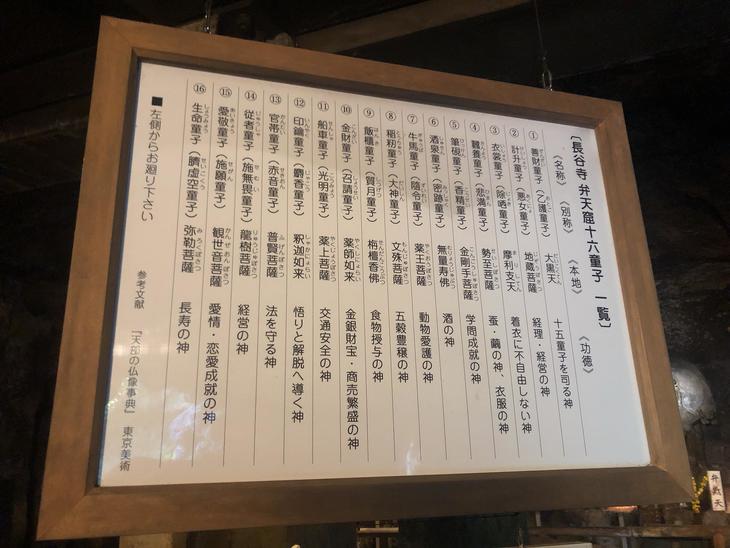 〔長谷寺 弁天窟十六童子 一覧〕
《名称》 《別称》 《本地》 《功徳》
① 善財童子(乙護童子) 大黒天 十五童子を司る神
② 計升童子(悪女童子) 地蔵菩薩 経理・経営の神
③ 衣裳童子(除哂童子) 摩利支天 着衣に不自由しない神
④ 蠶養童子(悲満童子) 勢至菩薩 蚕・繭の神、衣服の神
⑤ 筆硯童子(香精童子) 金剛手菩薩 学問成就の神
⑥ 酒泉童子(密跡童子) 無量寿佛 酒の神
⑦ 牛馬童子(陰令童子) 薬王菩薩 動物愛護の神
⑧ 稲籾童子(大神童子) 文殊菩薩 五穀豊穣の神
⑨ 飯櫃童子(質月童子) 栴檀香佛 食物授与の神
⑩ 金財童子(召請童子) 薬師如来 金銀財宝・商売繁盛の神
⑪ 船車童子(光明童子) 薬上菩薩 交通安全の神
⑫ 印鑰童子(麝香童子) 釈迦如来 悟りと解脱へ導く神
⑬ 官帯童子(赤音童子) 普賢菩薩 法を守る神
⑭ 従者童子(施無畏童子) 龍樹菩薩 経営の神
⑮ 愛敬童子(施願童子) 観世音菩薩 愛情・恋愛成就の神
⑯ 生命童子(臍虚空童子) 弥勒菩薩 長寿の神
■ 左側からお廻り下さい
参考文献 『天部の仏像事典』 東京美術
弁戝天